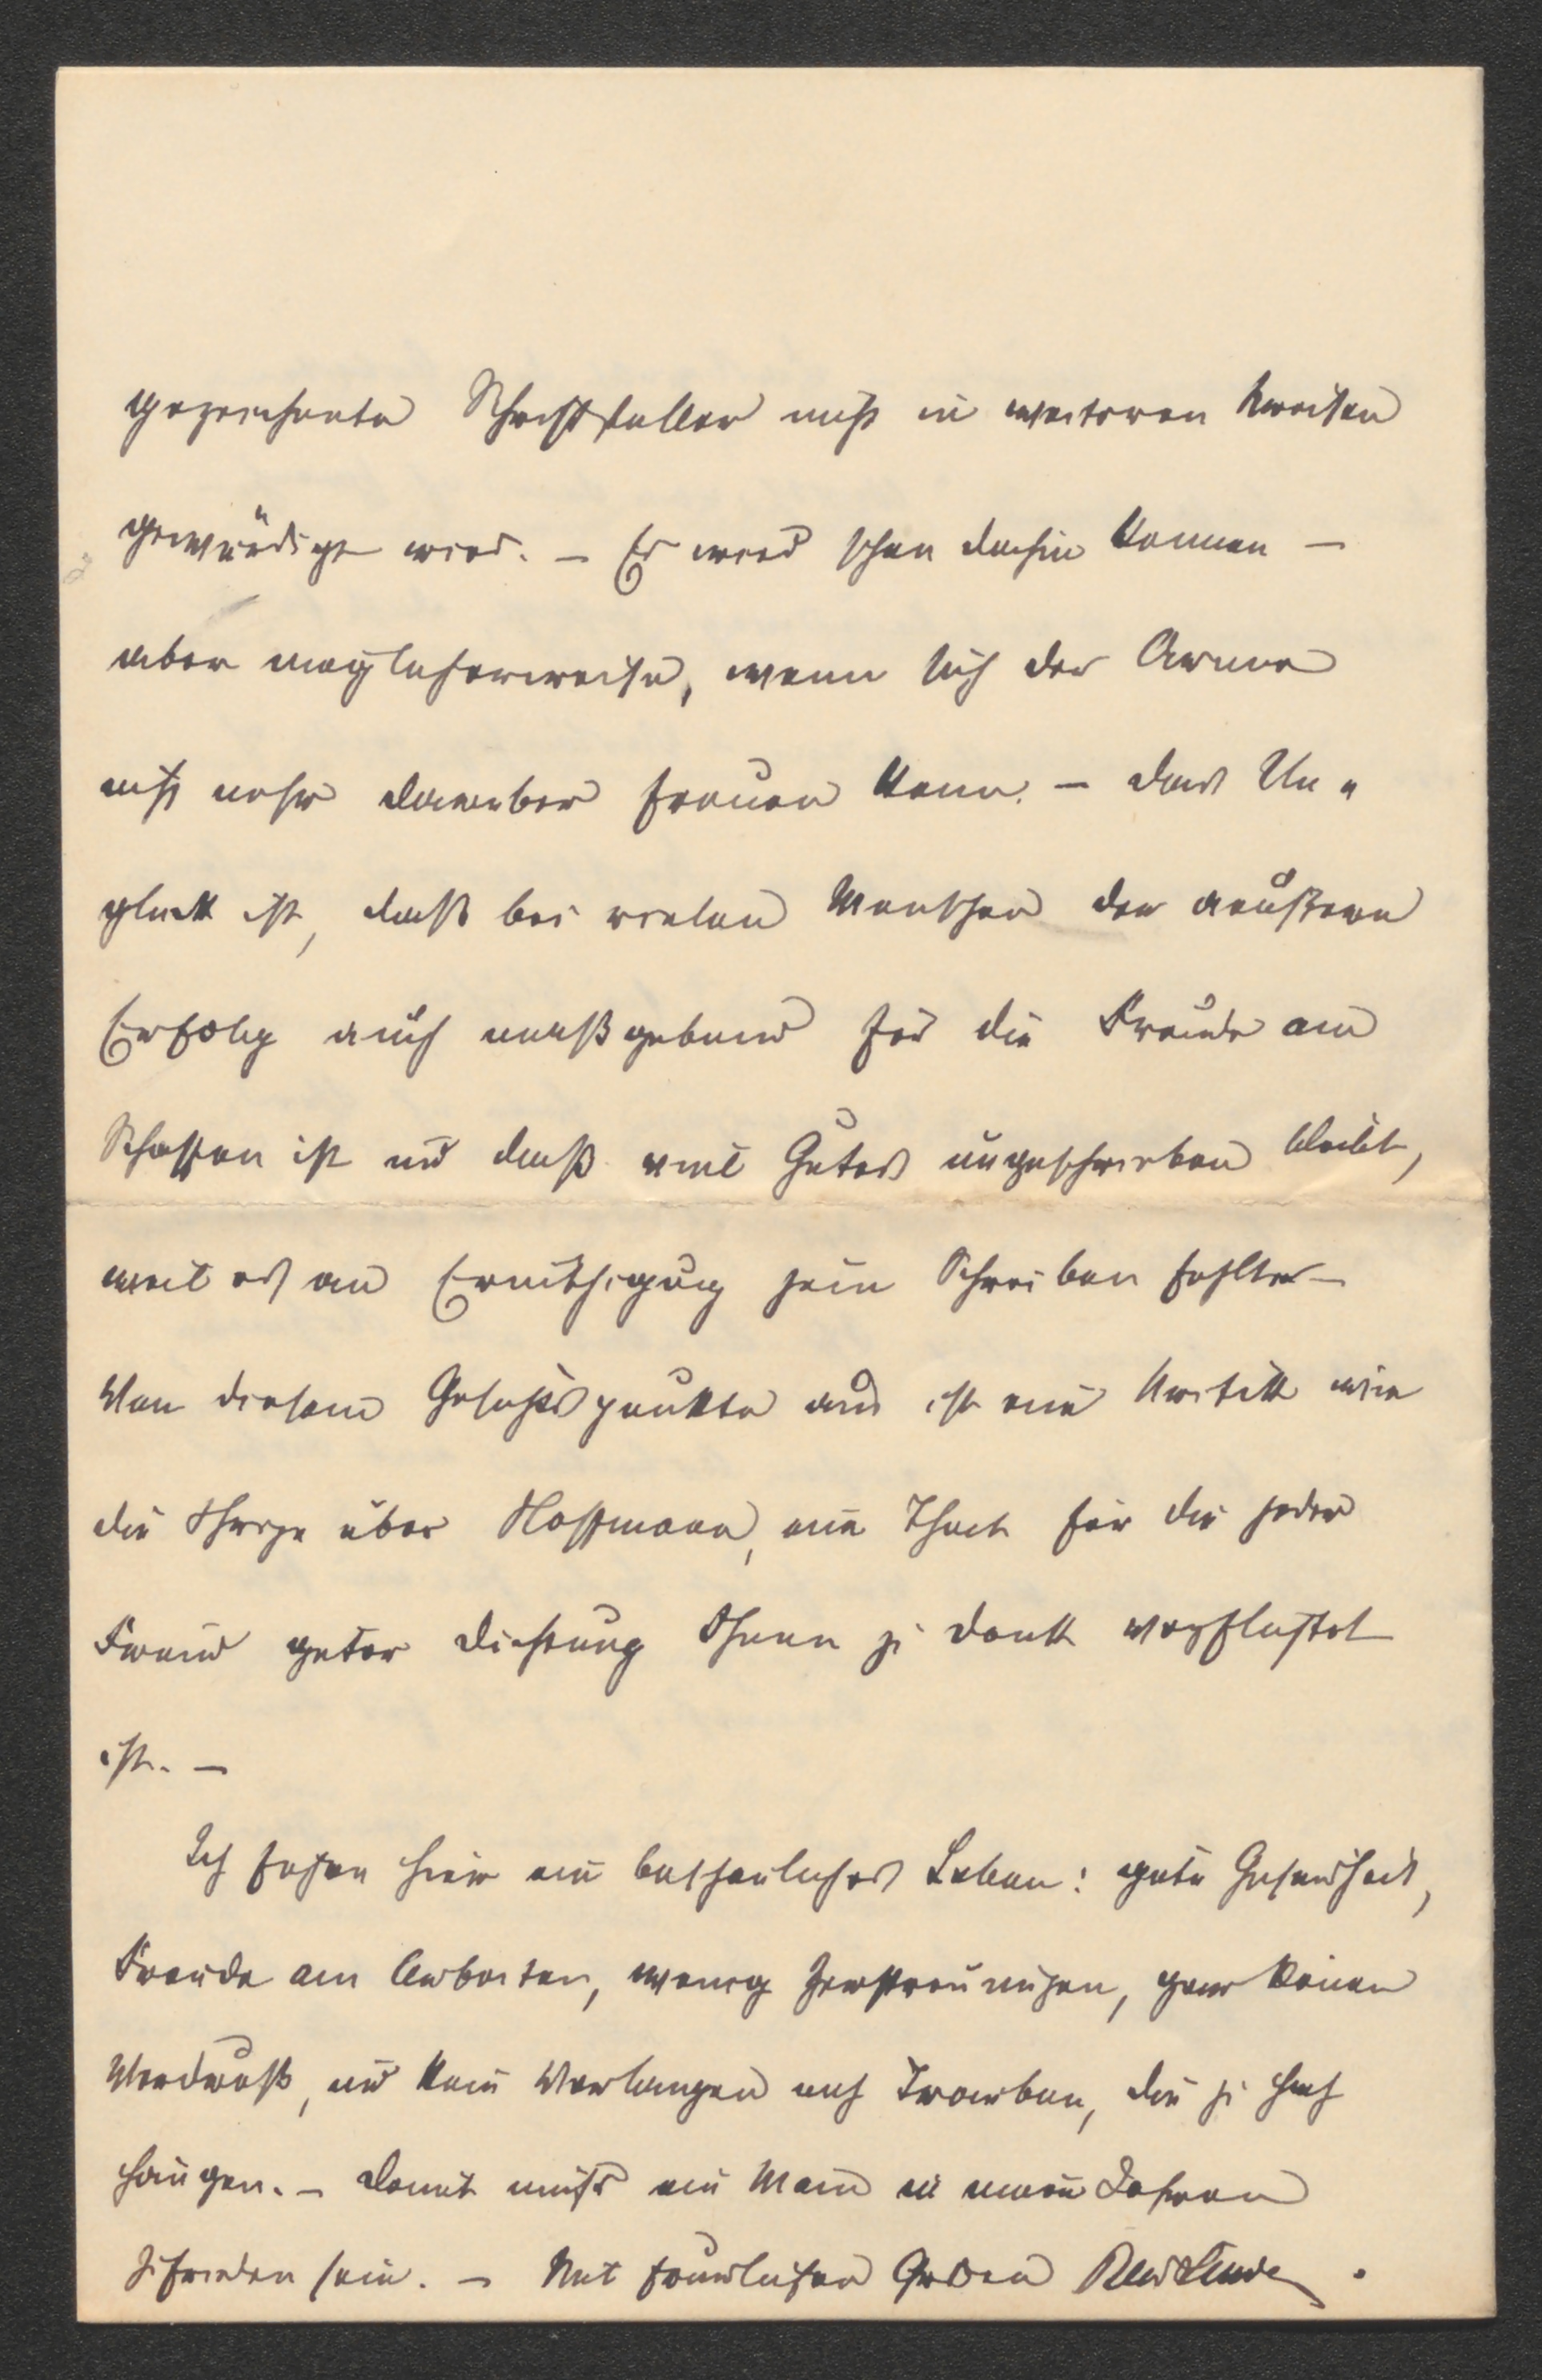 gezeichneter Schriftsteller nicht in weiteren Kreisen
gewürdigt wird. – Es wird schon dahin kommen –
aber möglicherweise, wenn sich der Arme
nicht mehr darueber freuen kann. – Das Un-
glück ist, daß bei vielen Menschen der aeußere
Erfolg auch maßgebend für die Freude am
Schaffen ist und daß viel Gutes ungeschrieben bleibt,
weil es an Ermuthigung zum Schreiben fehlte –
Von diesem Gesichtspunkte aus ist eine Kritik wie
die Ihrige über Hoffmann, eine That für die jeder
Freund guter Dichtung Ihnen zu Dank verpflichtet
ist. –
Ich fuehre hier ein beschauliches Leben: gute Gesundheit,
Freude am Arbeiten, wenig Zerstreuungen, gar keinen
Verdruß, und kein Verlangen nach Trauben, die zu hoch
haengen. – Damit muß ein Mann in meinen Jahren
zufrieden sein. – Mit freundlichen Grüßen